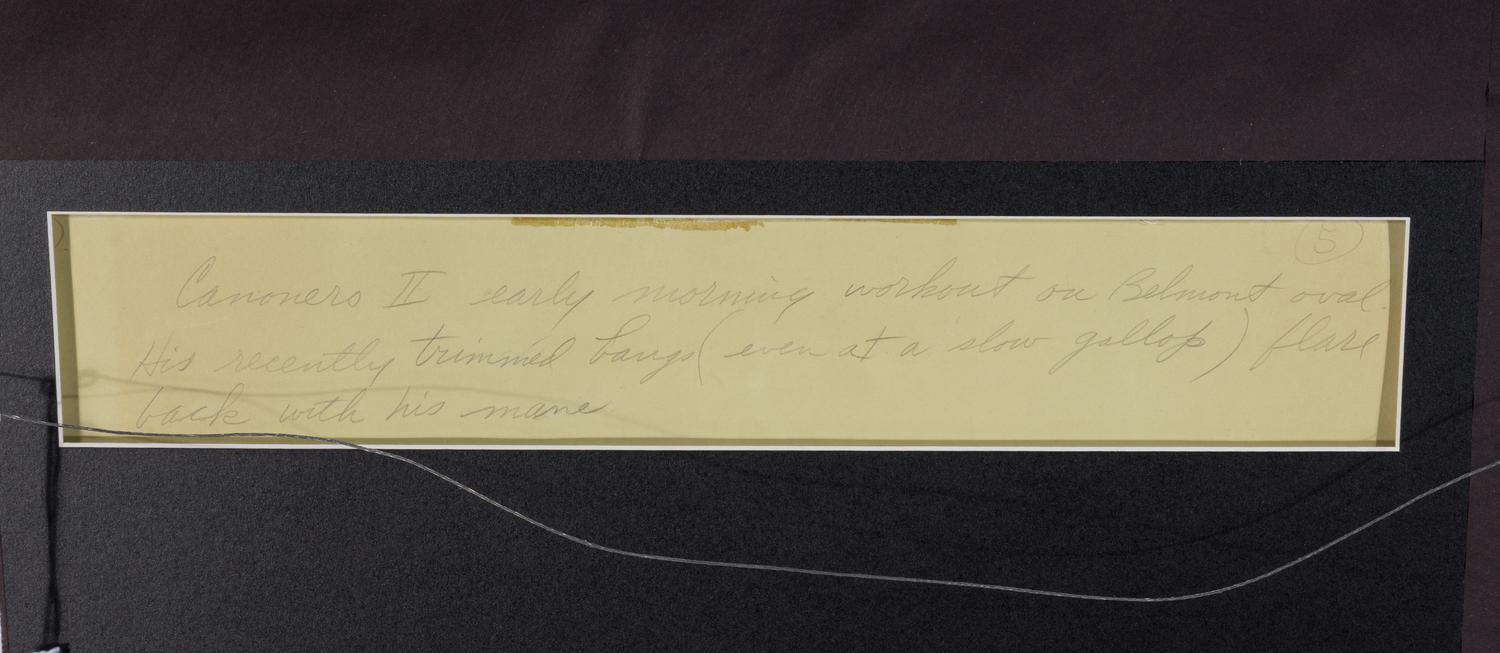 5
Canonero II early morning workout on Belmont oval.
His recently trimmed bangs (even at a slow gallop) flare
back with his mane